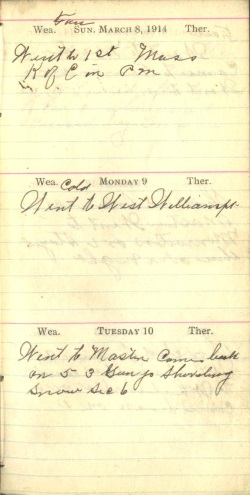 Fair
Wea. SUN. MARCH 8, 1914 Ther.
Went to 1st Mass
K of C in P m
Wea. Cold MONDAY 9 Ther.
Went to West Williamspt.
Wea. TUESDAY 10 Ther.
Went to Mastin Come back
on 53 Gangs Shoveling
Snow Sec 6